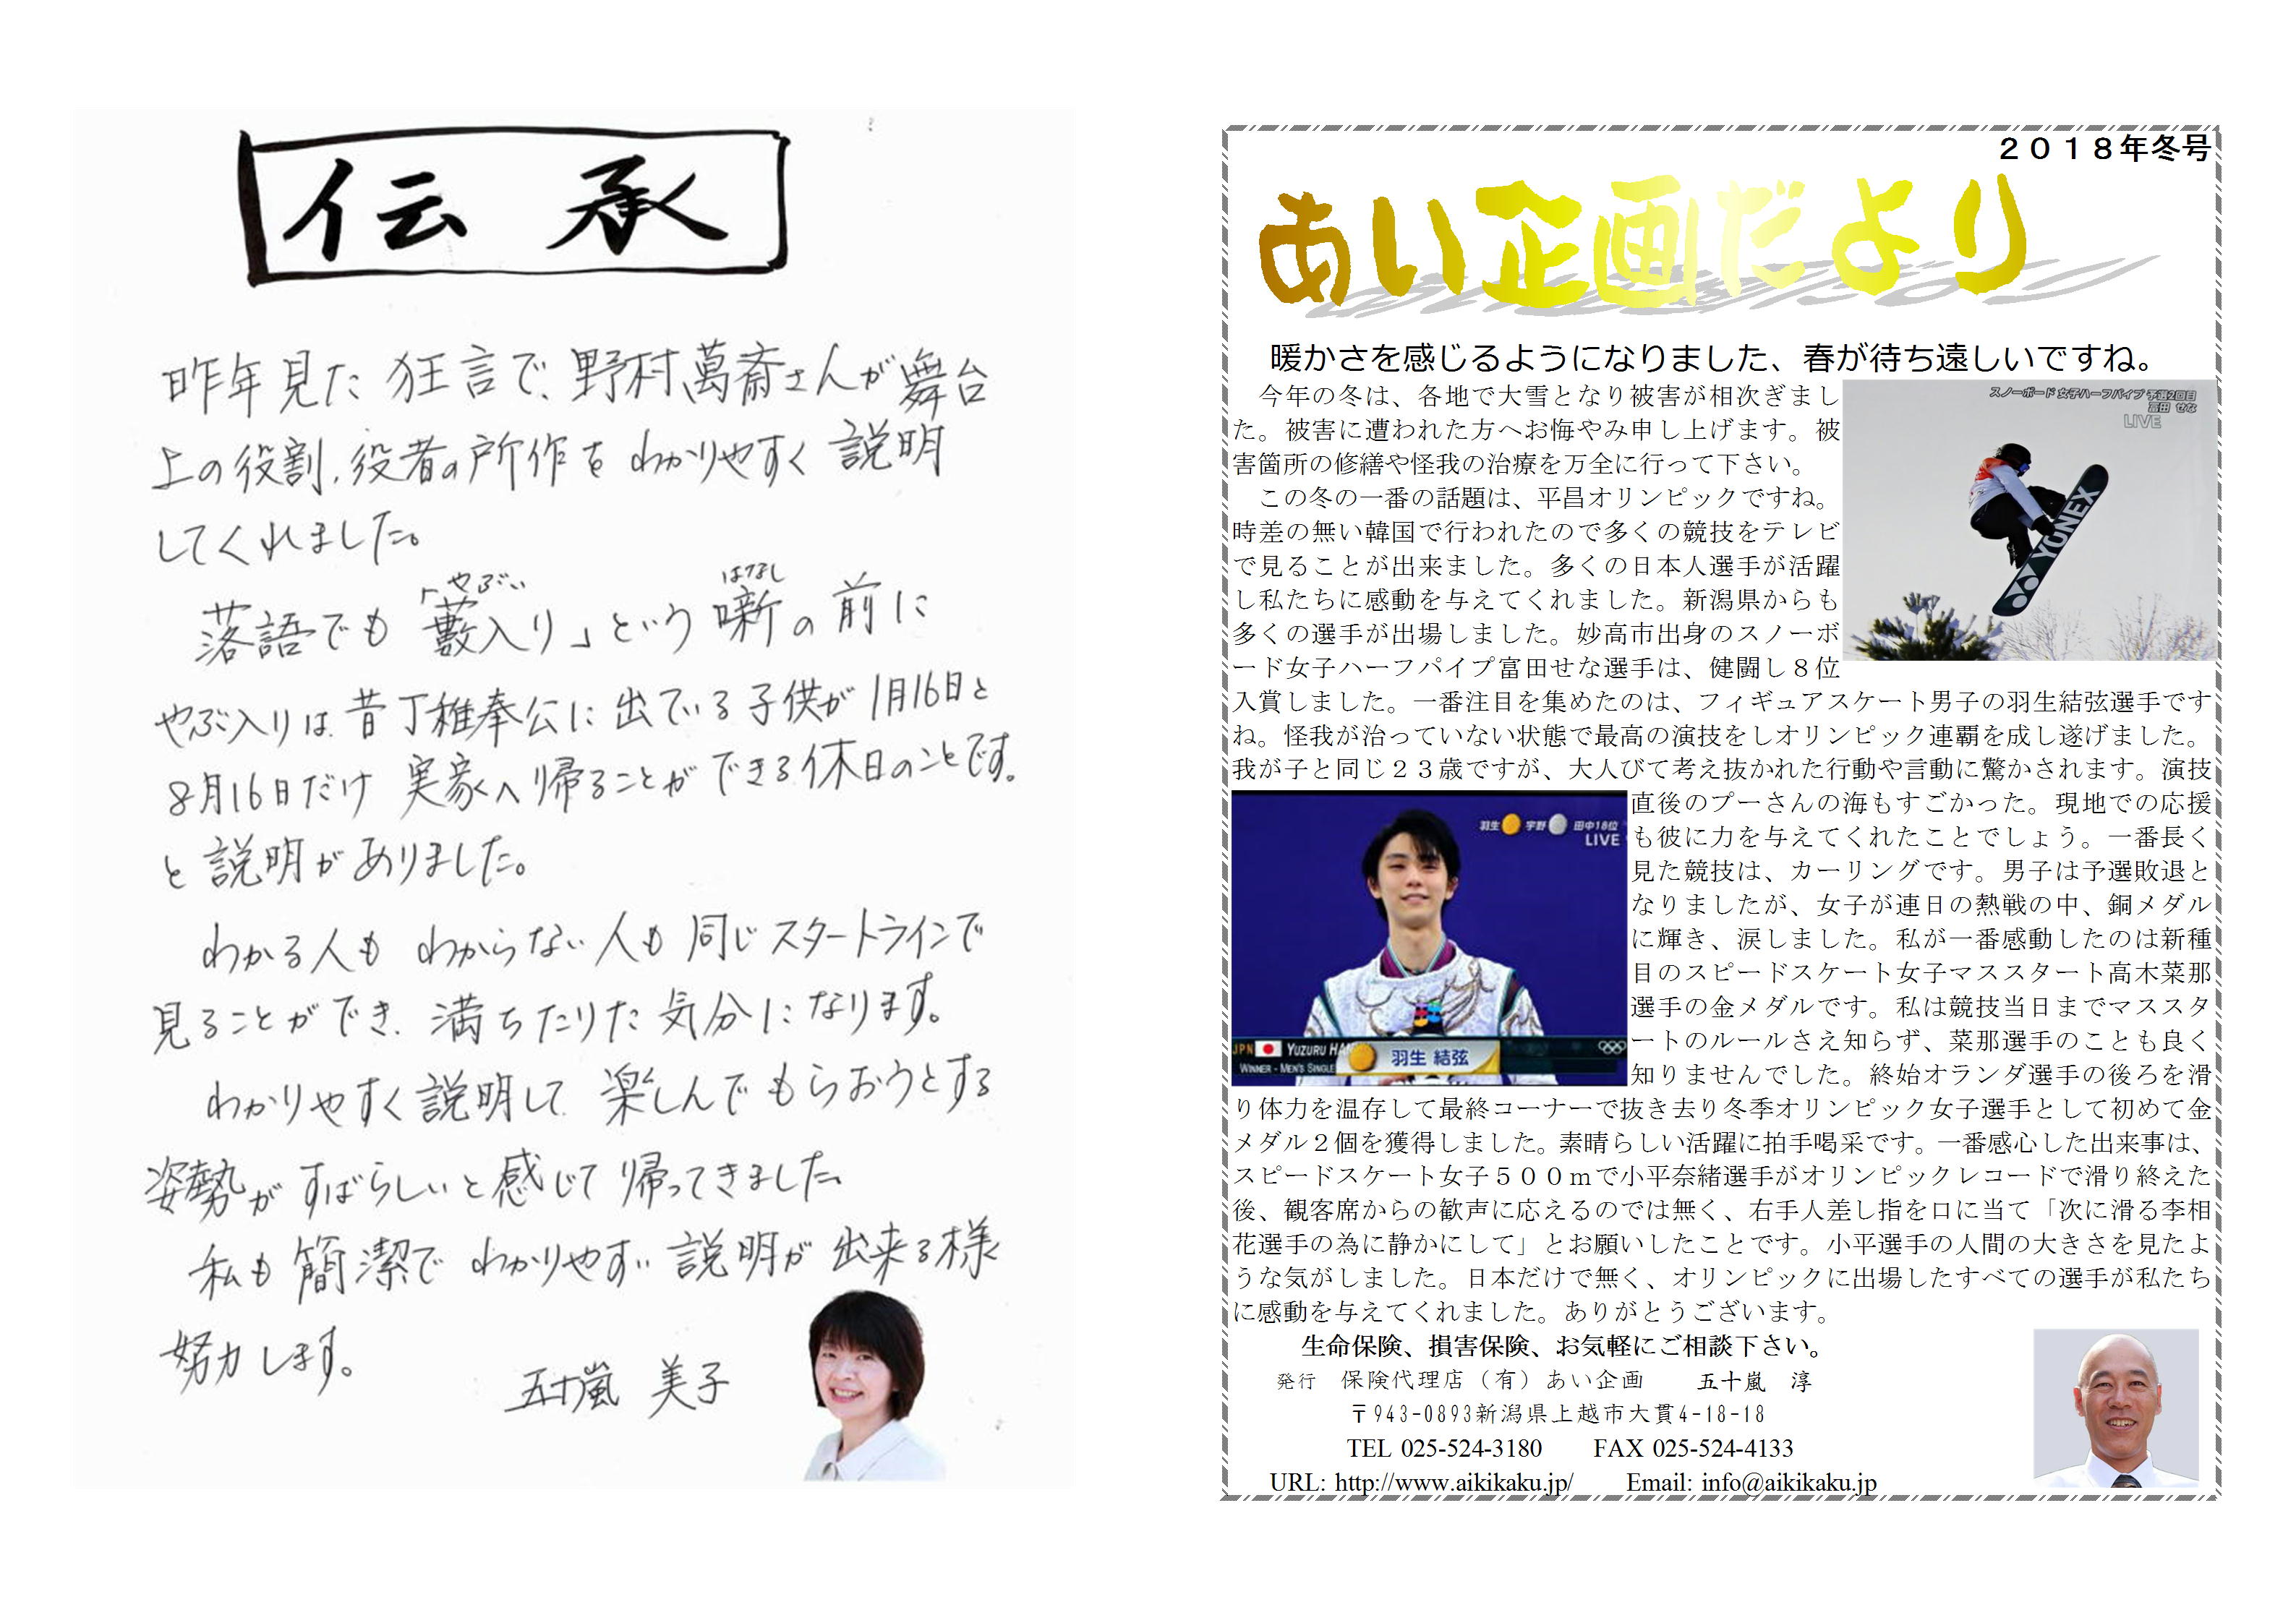 伝承
昨年見た狂言で、野村萬斎さんが舞台
上の役割、役者の所作をわかりやすく説明
してくれました。
やぶい はなし
落語でも「藪入り」という噺の前に
やぶ入りは昔丁稚奉公に出ている子供が1月16日と
8月16日だけ実家へ帰ることができる休日のことです。
と説明がありました。
わかる人もわからない人も同じスタートラインで
見ることができ、満ちたりた気分になります。
わかりやすく説明して、楽しんでもらおうとする
姿勢がすばらしいと感じて帰ってきました。
私も簡潔でわかりやすい説明が出来る様
努力します。
五十嵐 美子
２０１８年冬号
あい企画だより
暖かさを感じるようになりました、春が待ち遠しいですね。
今年の冬は、各地で大雪となり被害が相次ぎまし
た。被害に遭われた方へお悔やみ申し上げます。被
害箇所の修繕や怪我の治療を万全に行って下さい。
この冬の一番の話題は、平昌オリンピックですね。
時差の無い韓国で行われたので多くの競技をテレビ
で見ることが出来ました。多くの日本人選手が活躍
し私たちに感動を与えてくれました。新潟県からも
多くの選手が出場しました。妙高市出身のスノーボ
ード女子ハーフパイプ富田せな選手は、健闘し８位
スノーボード 女子ハーフパイプ 予選2回目
富田 せな
LIVE
YONEX
入賞しました。一番注目を集めたのは、フィギュアスケート男子の羽生結弦選手です
ね。怪我が治っていない状態で最高の演技をしオリンピック連覇を成し遂げました。
我が子と同じ２３歳ですが、大人びて考え抜かれた行動や言動に驚かされます。演技
直後のプーさんの海もすごかった。現地での応援
も彼に力を与えてくれたことでしょう。一番長く
見た競技は、カーリングです。男子は予選敗退と
なりましたが、女子が連日の熱戦の中、銅メダル
に輝き、涙しました。私が一番感動したのは新種
目のスピードスケート女子マススタート高木菜那
選手の金メダルです。私は競技当日までマススタ
ートのルールさえ知らず、菜那選手のことも良く
知りませんでした。終始オランダ選手の後ろを滑
羽生 宇野 田中18位
LIVE
JPN YUZURU HAN
羽生 結弦
WINNER - MEN'S SINGLE
り体力を温存して最終コーナーで抜き去り冬季オリンピック女子選手として初めて金
メダル２個を獲得しました。素晴らしい活躍に拍手喝采です。一番感心した出来事は、
スピードスケート女子５００ｍで小平奈緒選手がオリンピックレコードで滑り終えた
後、観客席からの歓声に応えるのでは無く、右手人差し指を口に当て「次に滑る李相
花選手の為に静かにして」とお願いしたことです。小平選手の人間の大きさを見たよ
うな気がしました。日本だけで無く、オリンピックに出場したすべての選手が私たち
に感動を与えてくれました。ありがとうございます。
生命保険、損害保険、お気軽にご相談下さい。
発行 保険代理店（有）あい企画 五十嵐 淳
〒943-0893新潟県上越市大貫4-18-18
TEL 025-524-3180 FAX 025-524-4133
URL: http://www.aikikaku.jp/ Email: info@aikikaku.jp